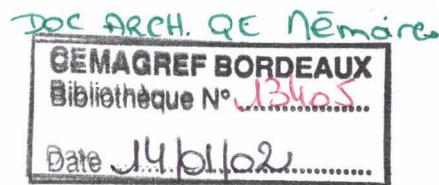 DOC ARCH. QE Mémoires
CEMAGREF BORDEAUX
Bibliothèque N° 13405
Date 14/01/02